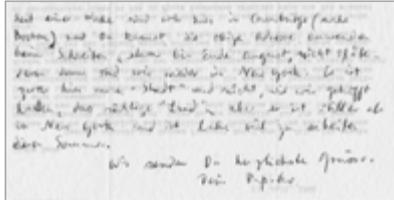 Seit einer Woche sind wir hier in Cambridge (nahe
Boston) und Du kannst die obige Adresse verwenden
beim Schreiben, aber bis Ende August, nicht
denn dann sind wir wieder in New York. Es ist
zwar hier eine "Stadt" und nicht, wie wir gehofft
hatten, das richtige "Land", aber es ist stiller als
in New York und ich habe viel zu arbeiten
diesen Sommer.
Wir senden Dir herzlichste Grüsse.
Dein